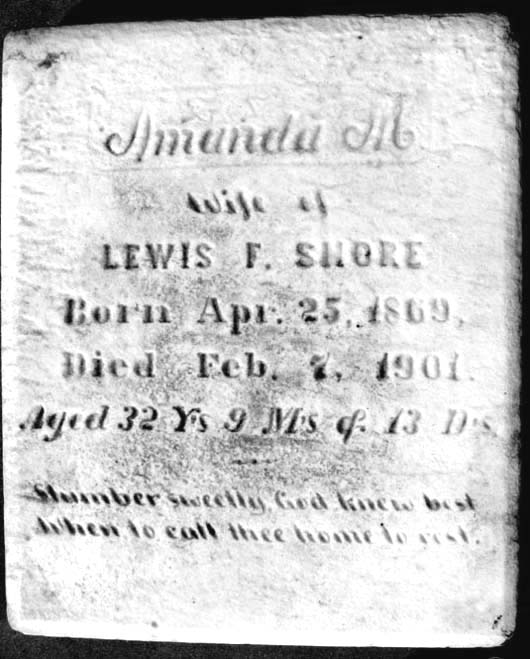 Amanda M.
Wife of
LEWIS F. SHORE
Born Apr. 25, 1869,
Died Feb. 7, 1901.
Aged 32 Ys 9 Ms & 13 Ds.
Slumber sweetly, God knew best
When to call thee home to rest.